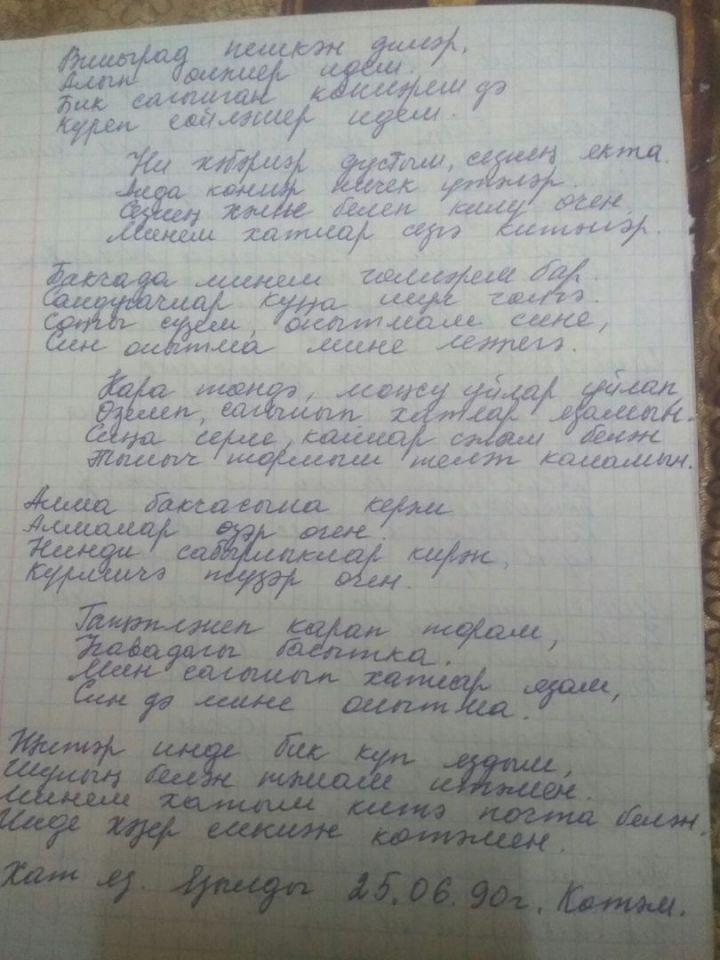 Виноград пешкән димәр,
Алып өлкиер идем.
Бик сагынган көннәремдә
Күреп сөйләшер идем.
Ни хәбәрләр дустым, сезнең якта.
Анда көннәр ничек үтәләр.
Сезнең хәлне белеп килү өчен
Минем хатлар сезгә китәләр.
Бакчада минем гөлләрем бар.
Сандугачлар куна шул гөлгә.
Соңгы сүзем, онытмам сине,
Син онытма мине мәңгегә.
Кара төндә, моңсу уйлар уйлап
Өзелеп, сагынып хатлар язамын.
Сиңа серле, кайнар сәлам белән
Тыныч тормыш теләп каламын.
Алма бакчасына керәм
Алмалар өзәр өчен.
Нинди сабырлыклар кирәк,
Күрмичә түзәр өчен.
Гаҗәпләнеп карап торам,
Һавадагы басытка.
Мин сагынып хатлар язам,
Син дә мине онытма.
Җитәр инде бик күп яздым,
Шуның белән тәмам итәмен.
Минем хатым китә почта белән.
Инде хәзер синнән көтәмен.
Хат яз. Язылды 25.06.90г. Көтәм.